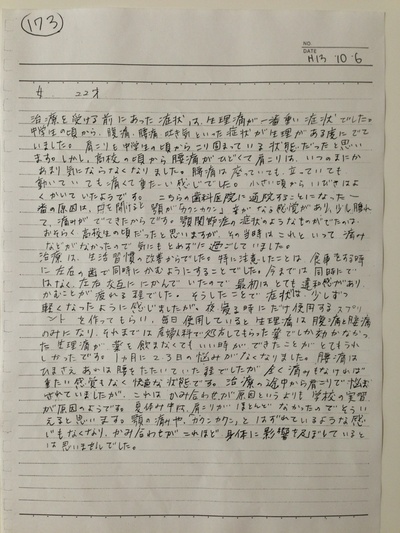 173
NO.
DATE
H13・10・6
女　22才
治療を受ける前にあった症状は、生理痛が一番重い症状でした。
中学生の頃から、腹痛、腰痛、吐き気といった症状が生理がある度にでて
いました。肩こりも中学生の頃からこり固まっている状態だったと思い
ます。しかし、高校の頃から腰痛がひどくて肩こりは、いつのまにか
あまり気にならなくなりました。腰痛は座っていても、立っていても
動いていても痛くて重たい感じでした。小さい頃からいびきはよ
くかいていたようです。こちらの歯科医院に通院することになった一
番の原因は、口を開けると顎が「カクンカクン」音がなる感覚があり、少し腫れ
て、痛みがでてきたからです。顎関節症の症状のようなものがでたのは
おそらく高校生の頃だったと思いますが、その当時はこれといって痛み
などがなかったので気にもとめずに過ごしていました。
治療は、生活習慣の改善からでした。特に注意したことは、食事をする時
に左右の歯で同時にかむようにすることでした。今までは同時にで
はなく、左右交互にかんでいたので、最初はとても違和感があり、
かむことが疲れる程でした。そうしたことで症状は、少しずつ
軽くなったように感じましたが、夜寝る時にだけ使用するスプリ
ントを作ってもらい、毎日使用していると生理痛は腹痛と腰痛
のみになり、それまでは産婦人科で処方してもらった薬でしか効かなか
った生理痛が薬を飲まなくてもいい時ができたことがとてもうれ
しかったです。1ヵ月に2、3日の悩みがなくなりました。腰痛は
ひまさえあれば腰をたたいていた程でしたが、全く痛みもなければ
重たい感覚もなく快適な状態です。治療の途中から肩こりで悩ま
されていましたが、これはかみ合わせが原因というよりも学校の実習
が原因のようです。夏休み中は、肩こりがほとんどなかったのでそうい
えると思います。顎の痛みや、「カクンカクン」とはずれているような感
じもなくなり、かみ合わせがこれほど身体に影響を及ぼしていると
は思いませんでした。